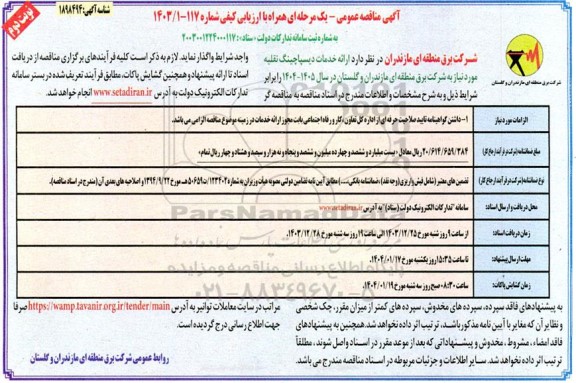 شناسه آگهی: ۱۸۹۸۴۹۴
نوبت دوم
آگهی مناقصه عمومی - یک مرحله ای همراه با ارزیابی کیفی شماره ۱۱۷-۱۴۰۳/۱
به شماره ثبت سامانه تدارکات دولت «ستاد»: ۲۰۰۳۰۰۱۲۳۴۰۰۰۱۱۷
شرکت برق منطقه ای مازندران و گلستان
شرکت برق منطقه ای مازندران در نظر دارد ارائه خدمات دیسپاچینگ نقلیه
مورد نیاز به شرکت برق منطقه ای مازندران و گلستان در سال ۱۴۰۵-۱۴۰۴ را برابر
شرایط ذیل و به شرح مشخصات و اطلاعات مندرج در اسناد مناقصه به مناقصه گر
واجد شرایط واگذار نماید. لازم به ذکر است کلیه فرآیندهای برگزاری مناقصه از دریافت
اسناد تا ارائه پیشنهاد و همچنین گشایش پاکات، مطابق فرآیند تعریف شده در بستر سامانه
تدارکات الکترونیک دولت به آدرس www.setadiran.ir انجام خواهد شد.
الزامات مورد نیاز
۱- داشتن گواهینامه تایید صلاحیت حرفه ای از اداره کل تعاون، کار و رفاه اجتماعی بابت مجوز ارائه خدمات در زمینه موضوع مناقصه الزامی می باشد.
مبلغ ضمانتنامه (شرکت در فرآیند ارجاع کار)
۲۰/۶۱۴/۶۵۹/۳۸۴ ریال معادل «بیست میلیارد و ششصد و چهارده میلیون و ششصد و پنجاه و نه هزار و سیصد و هشتاد و چهار ریال تمام»
نوع ضمانتنامه (شرکت در فرآیند ارجاع کار)
تضمین های معتبر (شامل فیش واریزی (وجه نقد)، ضمانتنامه بانکی، ...) مطابق آیین نامه تضامین دولتی مصوبه هیات وزیران به شماره ۱۲۳۴۰۲/ت۵۰۶۵۹هـ مورخ ۱۳۹۴/۹/۲۲ و اصلاحیه های بعدی آن (مندرج در اسناد مناقصه).
محل دریافت و ارسال اسناد:
سامانه "تدارکات الکترونیک دولت (ستاد)" به آدرس www.setadiran.ir
زمان دریافت اسناد:
از ساعت ۹ روز شنبه مورخ ۱۴۰۳/۱۲/۲۵ الی ساعت ۱۹ روز سه شنبه مورخ ۱۴۰۳/۱۲/۲۸
مهلت ارسال پیشنهاد:
تا ساعت ۱۵:۳۵ روز یکشنبه مورخ ۱۴۰۴/۰۱/۱۷
زمان گشایش پاکات:
ساعت ۰۸:۳۰ صبح روز سه شنبه مورخ ۱۴۰۴/۰۱/۱۹
به پیشنهادهای فاقد سپرده، سپرده های مخدوش، سپرده های کمتر از میزان مقرر، چک شخصی
و نظایر آن که مغایر با آیین نامه مذکور باشد، ترتیب اثر داده نخواهد شد. همچنین به پیشنهادهای
فاقد امضاء، مشروط، مخدوش و پیشنهاداتی که بعد از موعد مقرر در اسناد واصل شوند، مطلقاً
ترتیب اثر داده نخواهد شد. سایر اطلاعات و جزئیات مربوطه در اسناد مناقصه مندرج می باشد.
مراتب در سایت معاملات توانیر به آدرس https://wamp.tavanir.org.ir/tender/main صرفا
جهت اطلاع رسانی درج گردیده است.
روابط عمومی شرکت برق منطقه ای مازندران و گلستان
ParsNamadData
پایگاه اطلاع رسانی مناقصه و مزایده
۰۲۱-۸۸۳۴۹۶۷۰-۵